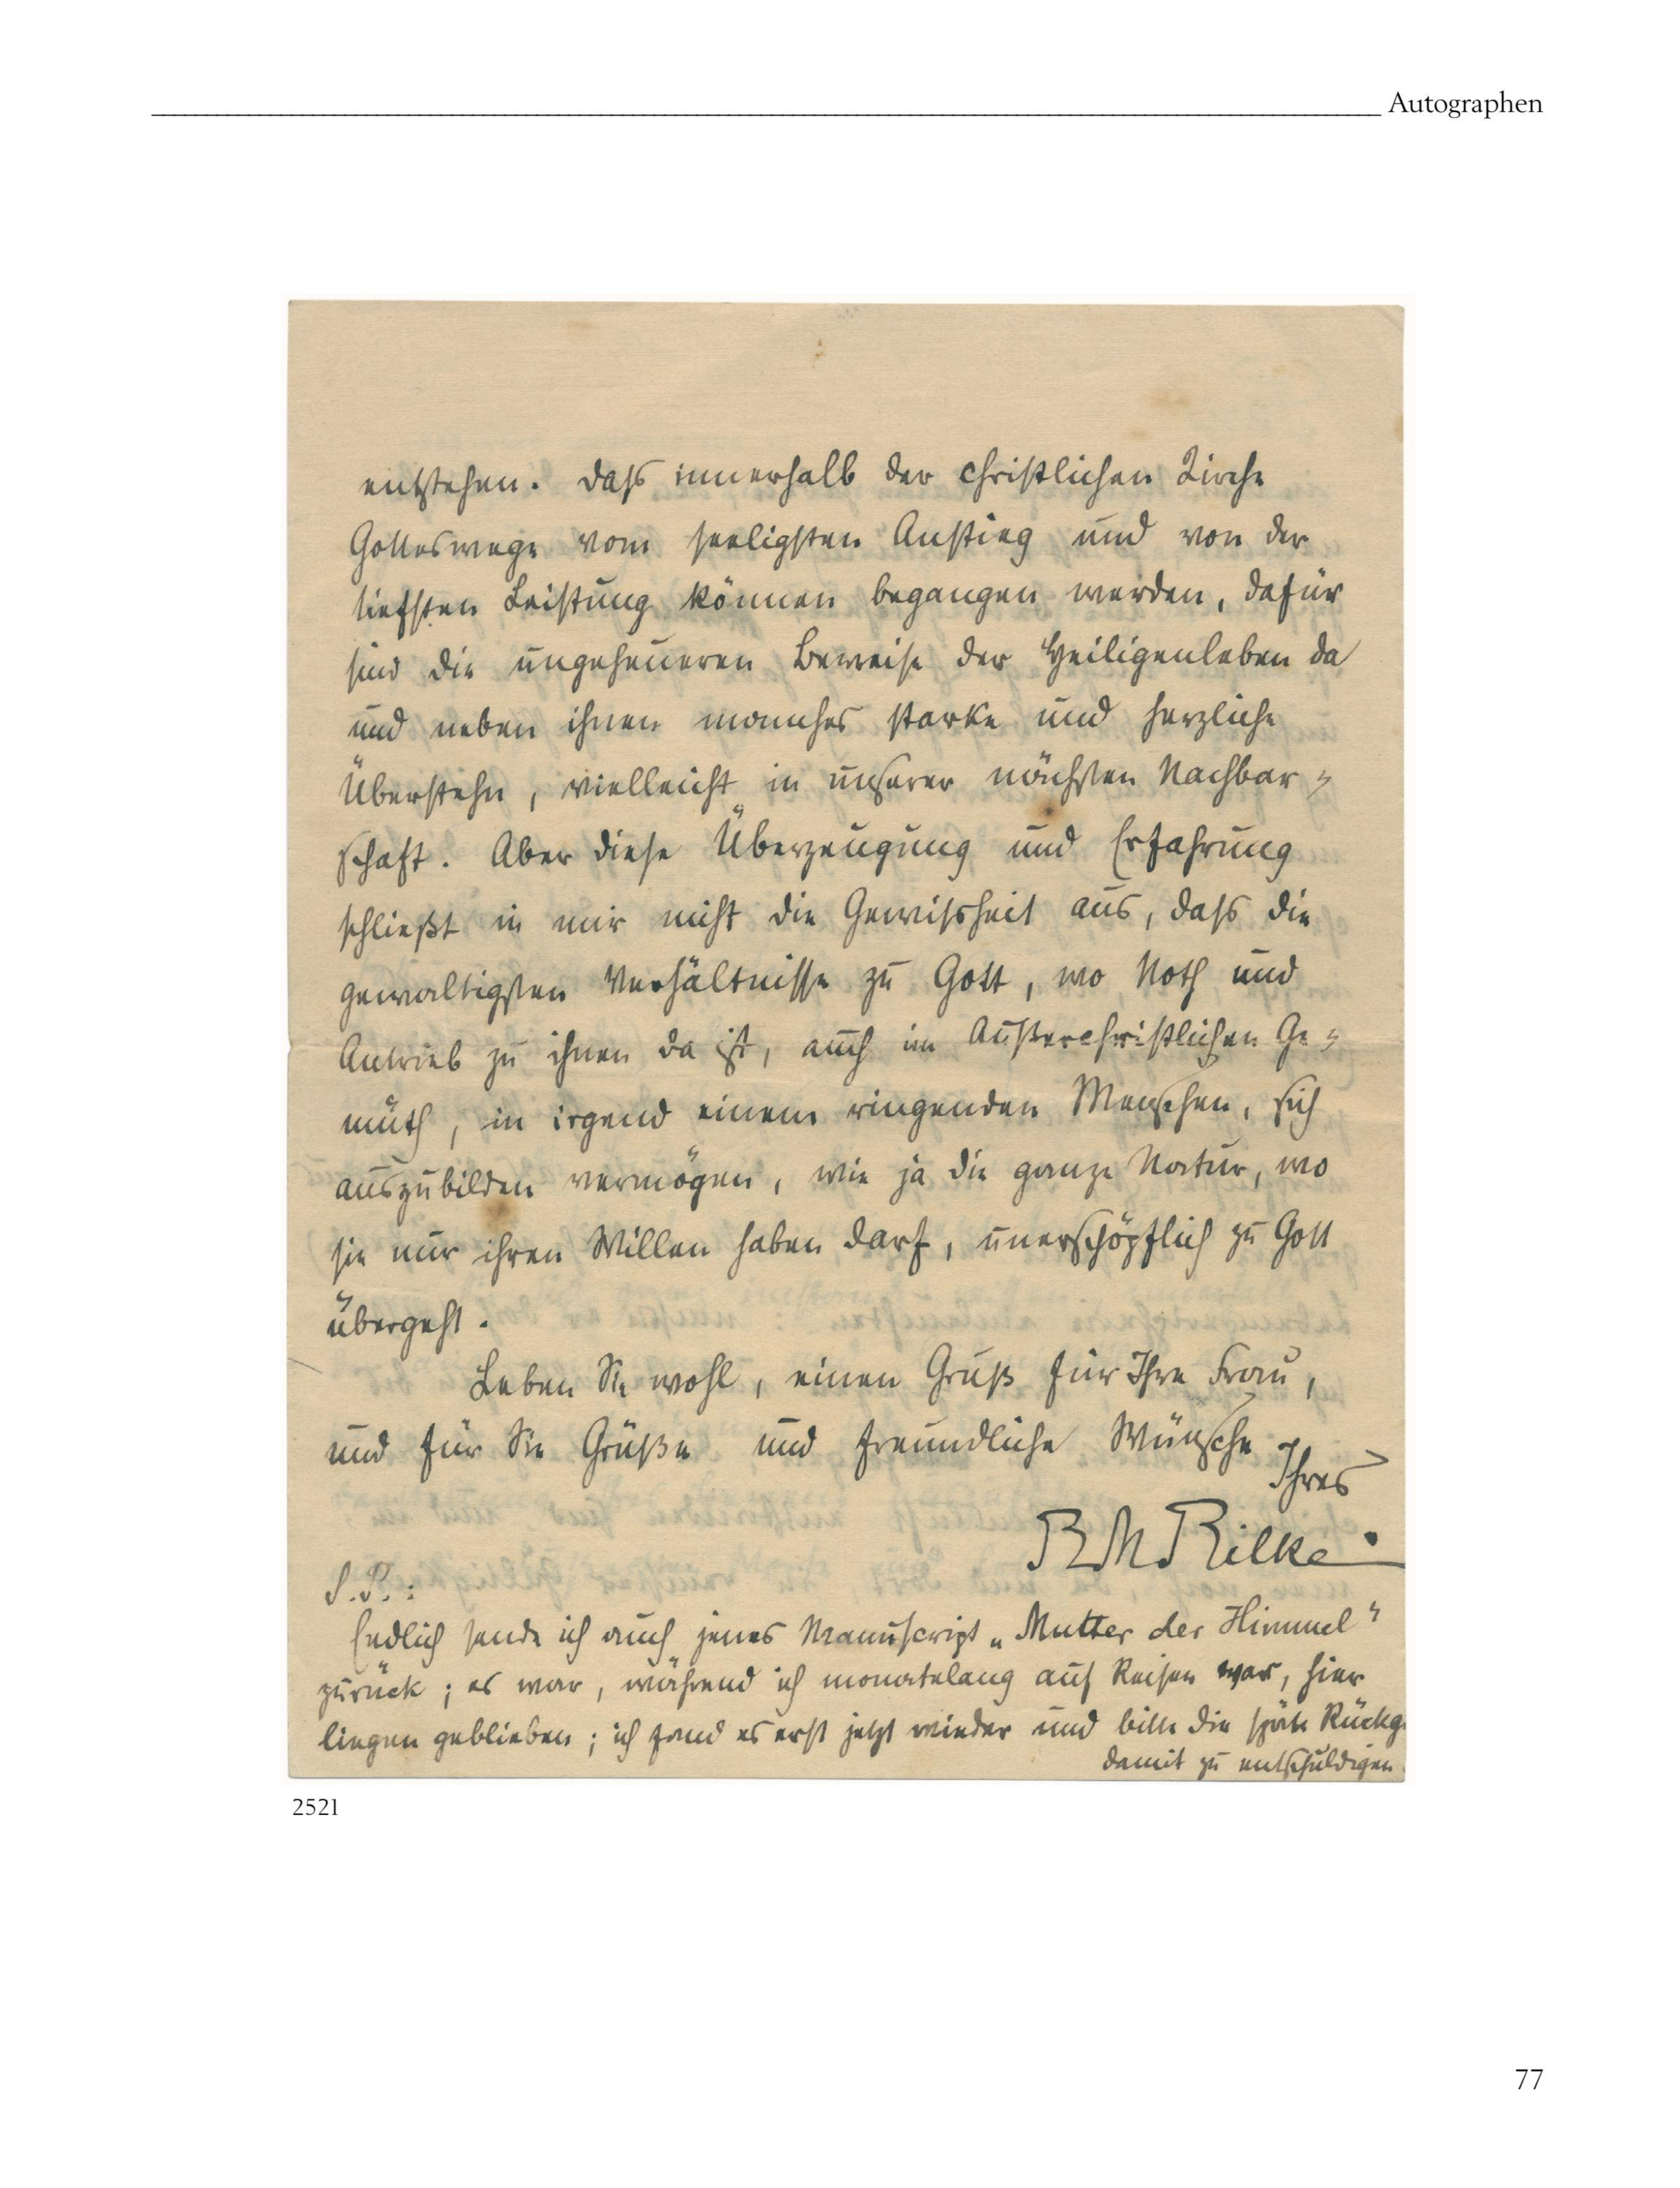 Autographen
entstehen. Dass innerhalb der christlichen Kirche
Gotteswege vom seeligsten Anstieg und von der
tiefsten Leistung können begangen werden, dafür
sind die ungeheueren Beweise der Heiligenleben da
und neben ihnen manches starke und herzliche
Überstehn, vielleicht in unserer nächsten Nachbar=
schaft. Aber diese Überzeugung und Erfahrung
schließt in mir nicht die Gewissheit aus, dass die
gewaltigsten Verhältnisse zu Gott, wo Noth und
Antrieb zu ihnen da ist, auch im Außerchristlichen Ge=
müth, in irgend einem ringenden Menschen, sich
auszubilden vermögen, wie ja die ganze Natur, wo
sie nur ihren Willen haben darf, unerschöpflich zu Gott
übergeht.
Leben Sie wohl, einen Gruß für Ihre Frau,
und für Sie Grüße und freundliche Wünsche
Ihres
RMRilke.
P.S.:
Endlich sende ich auch jenes Manuscript „Mutter der Himmel“
zurück; es war, während ich monatelang auf Reisen war, hier
liegen geblieben; ich fand es erst jetzt wieder und bitte die späte Rückg
damit zu entschuldigen.
2521
77